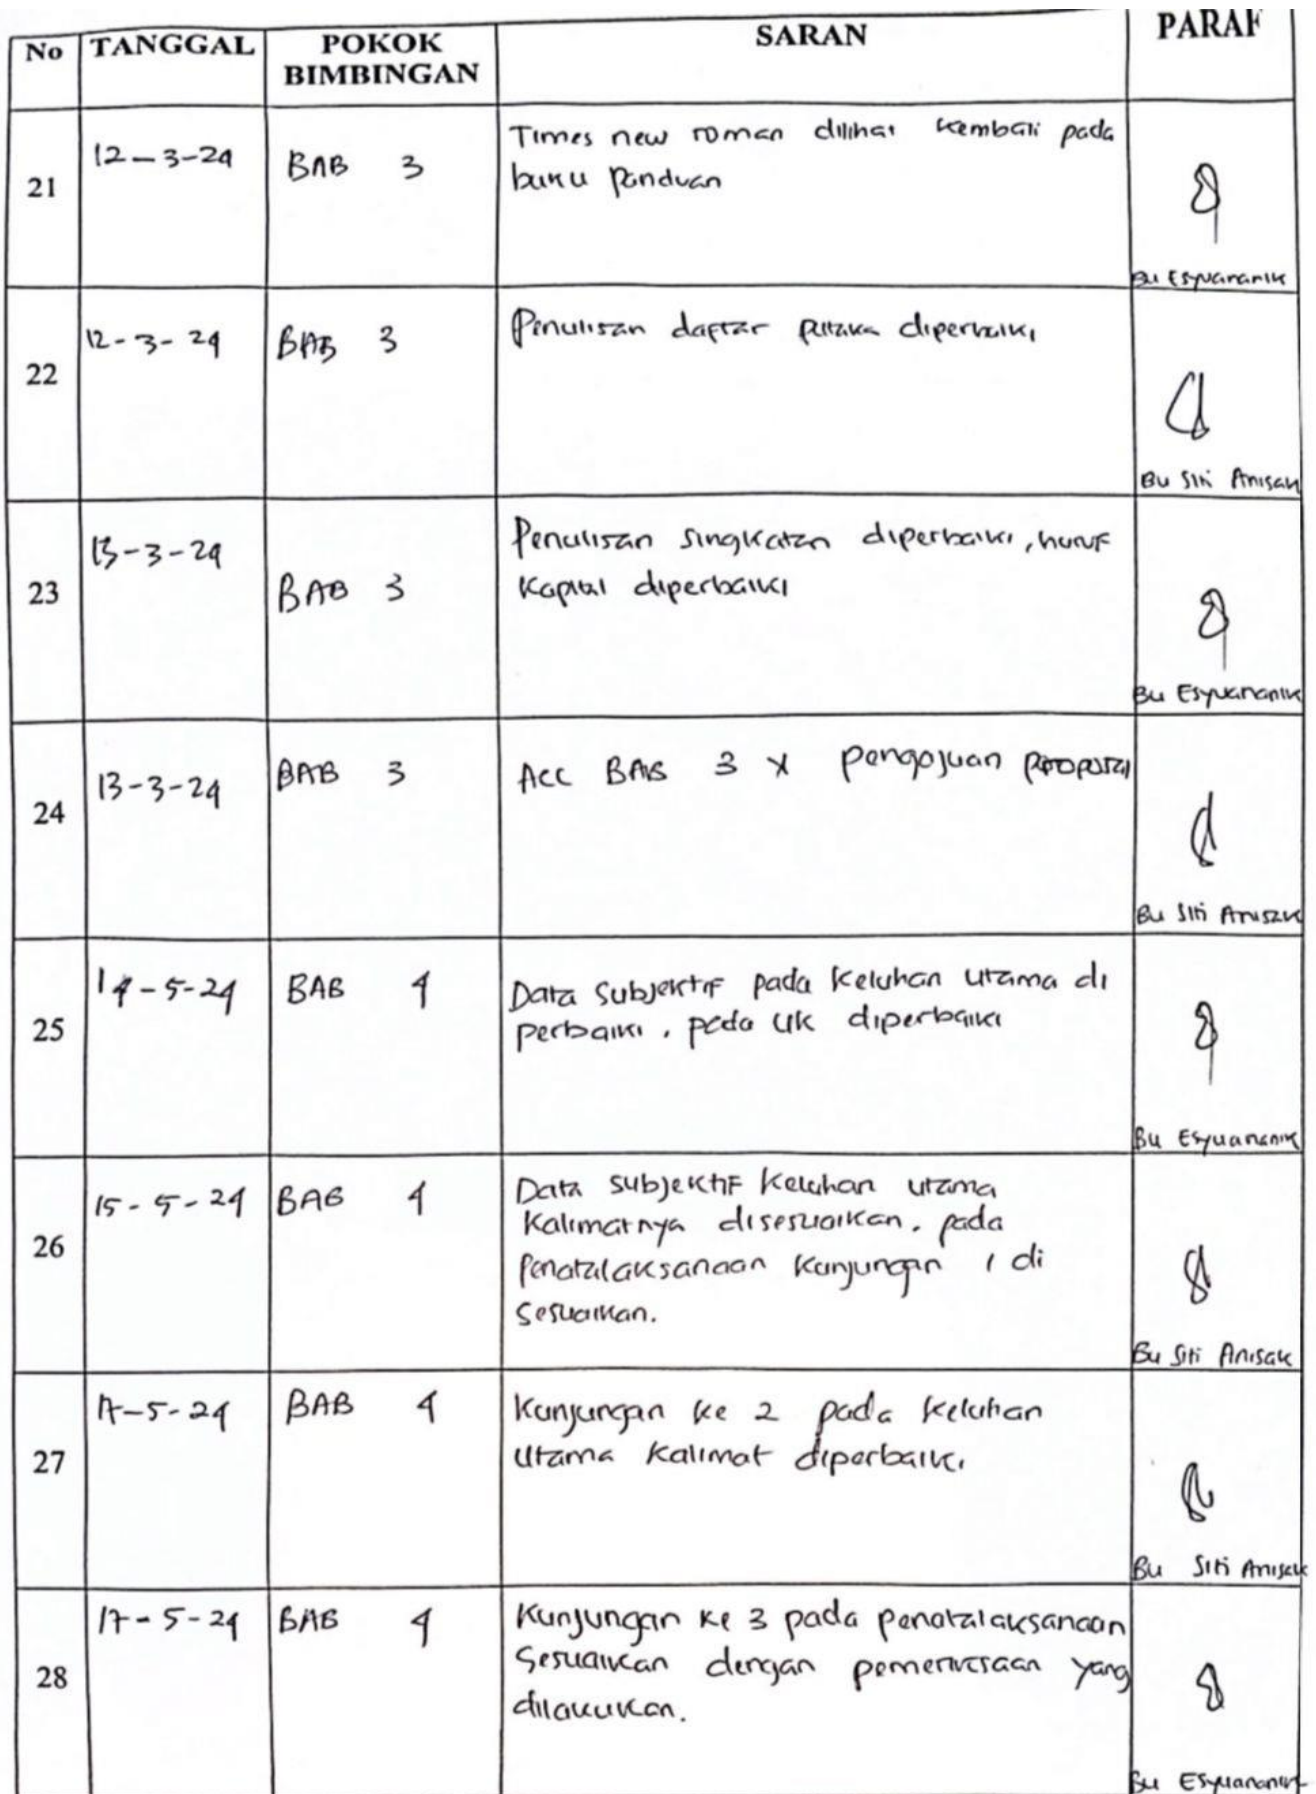 No TANGGAL POKOK BIMBINGAN SARAN PARAF
21 12-3-24 BAB 3 Times new roman dilihat kembali pada
buku panduan
Bu Esyuananik
22 12-3-24 BAB 3 Penulisan daftar pustaka diperbaiki
Bu Siti Anisah
23 13-3-24 BAB 3 Penulisan singkatan diperbaiki, huruf
Kapital diperbaiki
Bu Esyuananik
24 13-3-24 BAB 3 Acc BAB 3 pengajuan proposal
Bu Siti Anisah
25 14-5-24 BAB 4 Data Subjektif pada Keluhan utama di
perbaiki, pada UK diperbaiki
Bu Esyuananik
26 15-5-24 BAB 4 Data Subjektif Keluhan utama
Kalimatnya disesuaikan, pada
Penatalaksanaan Kunjungan 1 di
Sesuaikan.
Bu Siti Anisah
27 17-5-24 BAB 4 Kunjungan ke 2 pada Keluhan
Utama Kalimat diperbaiki
Bu Siti Anisah
28 17-5-24 BAB 4 Kunjungan Ke 3 pada penatalaksanaan
Sesuaikan dengan pemeriksaan yang
dilakukan.
Bu Esyuananik